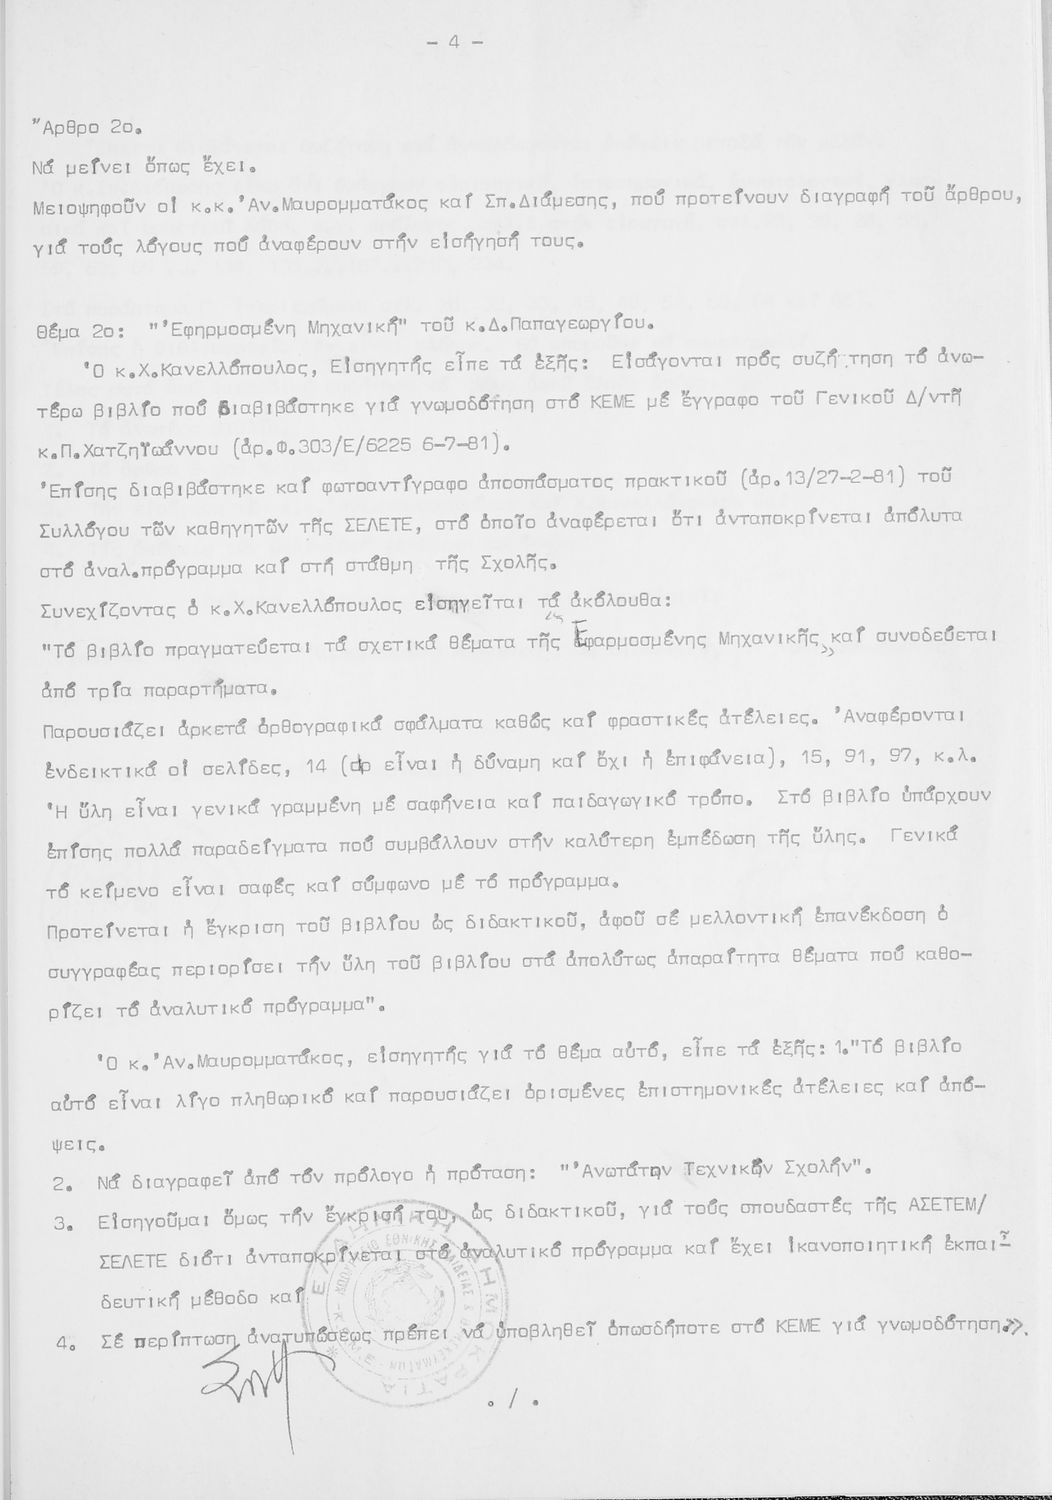 - 4 -
"Αρθρο 2ο.
Νά μείνει ὅπως ἔχει.
Μειοψηφοῦν οἱ κ.κ.'Αν.Μαυρομματάκος καί Σπ.Διάμεσης, πού προτείνουν διαγραφή τοῦ ἄρθρου,
γιά τούς λόγους πού ἀναφέρουν στήν εἰσήγησή τους.
θέμα 2ο: "'Εφηρμοσμένη Μηχανική" τοῦ κ.Δ.Παπαγεωργίου.
'Ο κ.Χ.Κανελλόπουλος, Εἰσηγητής εἶπε τά ἑξῆς: Εἰσάγονται πρός συζή τηση τό ἀνω-
τέρω βιβλίο πού διαβιβάστηκε γιά γνωμοδότηση στό ΚΕΜΕ μέ ἔγγραφο τοῦ Γενικοῦ Δ/ντῆ
κ.Π.Χατζηϊωάννου (ἀρ.Φ.303/Ε/6225 6-7-81).
'Επίσης διαβιβάστηκε καί φωτοαντίγραφο ἀποσπάσματος πρακτικοῦ (ἀρ.13/27-2-81) τοῦ
Συλλόγου τῶν καθηγητῶν τῆς ΣΕΛΕΤΕ, στό ὁποῖο ἀναφέρεται ὅτι ἀνταποκρίνεται ἀπόλυτα
στό ἀναλ.πρόγραμμα καί στή στάθμη τῆς Σχολῆς.
Συνεχίζοντας ὁ κ.Χ.Κανελλόπουλος εἰσηγεῖται τά ἀκόλουθα:
"Τό βιβλίο πραγματεύεται τά σχετικά θέματα τῆς «Εφαρμοσμένης Μηχανικῆς» καί συνοδεύεται
ἀπό τρία παραρτήματα.
Παρουσιάζει ἀρκετά ὀρθογραφικά σφάλματα καθώς καί φραστικές ἀτέλειες. 'Αναφέρονται
ἐνδεικτικά οἱ σελίδες, 14 (dp εἶναι ἡ δύναμη καί ὄχι ἡ ἐπιφάνεια), 15, 91, 97, κ.λ.
'Η ὕλη εἶναι γενικά γραμμένη μέ σαφήνεια καί παιδαγωγικό τρόπο. Στό βιβλίο ὑπάρχουν
ἐπίσης πολλά παραδείγματα πού συμβάλλουν στήν καλύτερη ἐμπέδωση τῆς ὕλης. Γενικά
τό κείμενο εἶναι σαφές καί σύμφωνο μέ τό πρόγραμμα.
Προτείνεται ἡ ἔγκριση τοῦ βιβλίου ὡς διδακτικοῦ, ἀφοῦ σέ μελλοντική ἐπανέκδοση ὁ
συγγραφέας περιορίσει τήν ὕλη τοῦ βιβλίου στά ἀπολύτως ἀπαραίτητα θέματα πού καθο-
ρίζει τό ἀναλυτικό πρόγραμμα".
'Ο κ.'Αν.Μαυρομματάκος, εἰσηγητής γιά τό θέμα αὐτό, εἶπε τά ἑξῆς: 1."Τό βιβλίο
αὐτό εἶναι λίγο πληθωρικό καί παρουσιάζει ὁρισμένες ἐπιστημονικές ἀτέλειες καί ἀπό-
ψεις.
2. Νά διαγραφεῖ ἀπό τόν πρόλογο ἡ πρόταση: "'Ανωτάτων Τεχνικῶν Σχολῶν".
3. Εἰσηγοῦμαι ὅμως τήν ἔγκρισή του, ὡς διδακτικοῦ, γιά τούς σπουδαστές τῆς ΑΣΕΤΕΜ/
ΣΕΛΕΤΕ διότι ἀνταποκρίνεται στό ἀναλυτικό πρόγραμμα καί ἔχει ἱκανοποιητική ἐκπαι-
δευτική μέθοδο καί
4. Σέ περίπτωση ἀνατυπώσεως πρέπει νά ὑποβληθεῖ ὁπωσδήποτε στό ΚΕΜΕ γιά γνωμοδότηση.».
ΕΛΛΗΝΙΚΗ ΔΗΜΟΚΡΑΤΙΑ
. / .